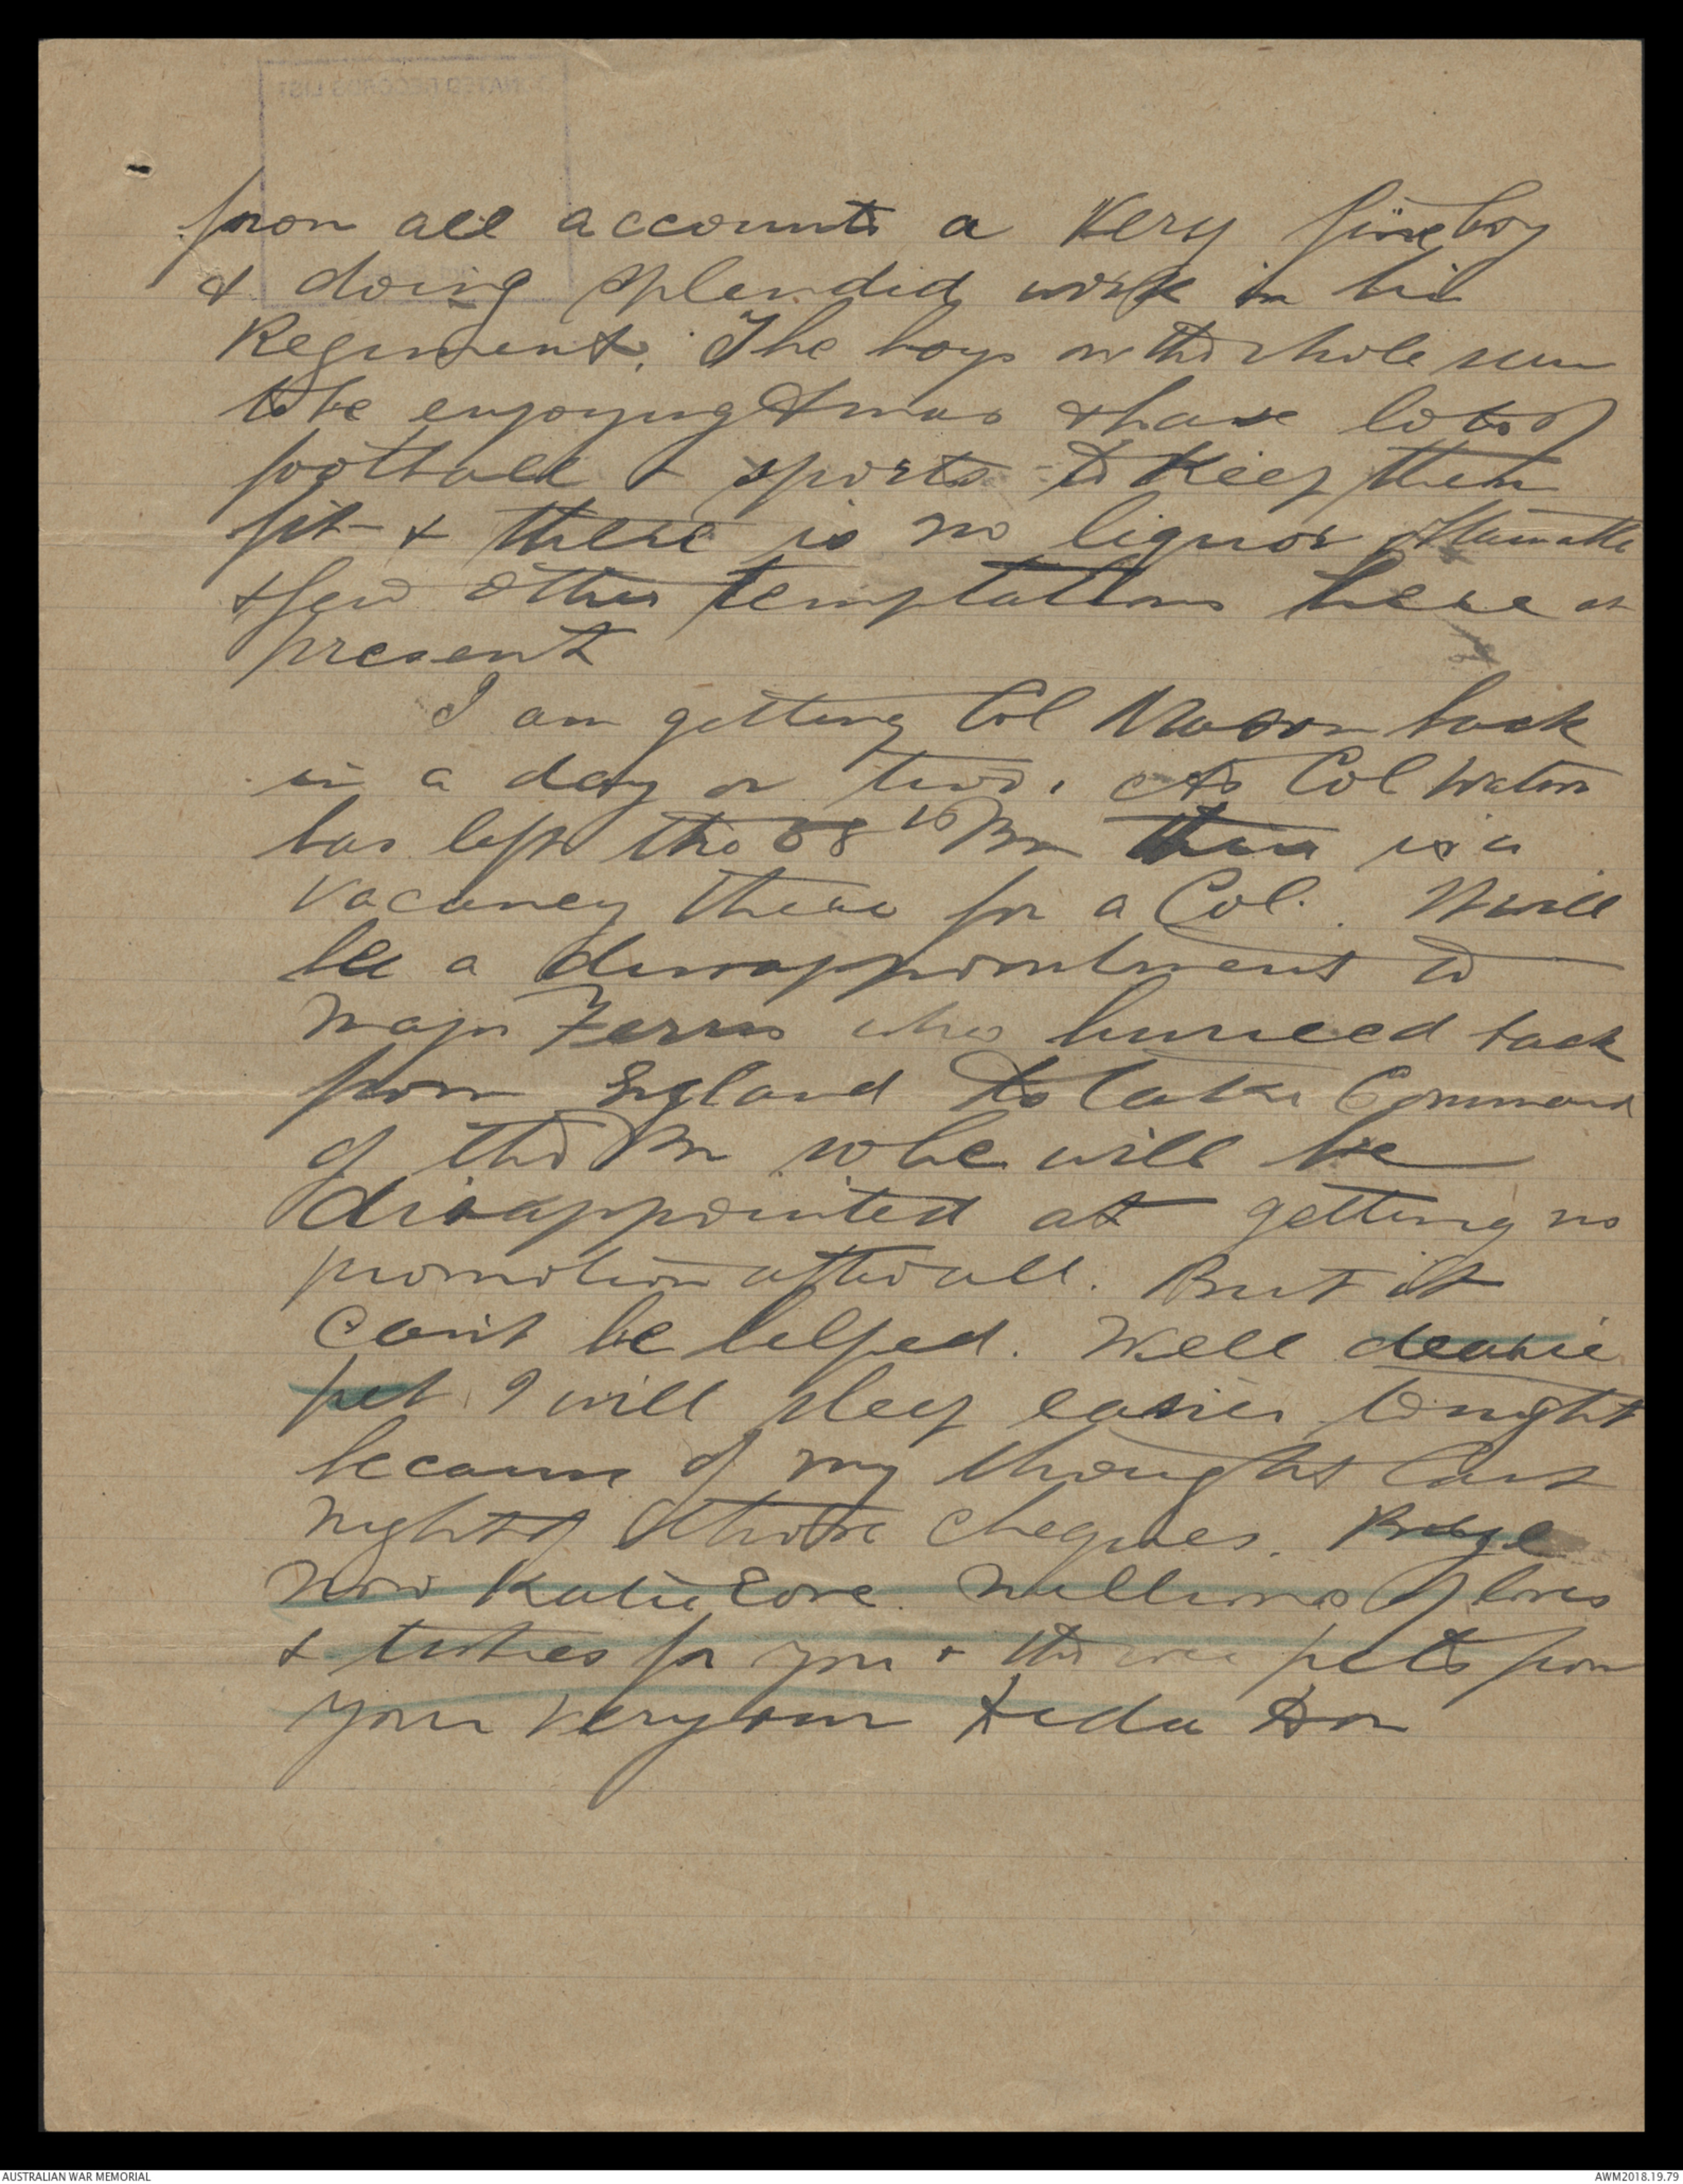 from all accounts a very fine boy
& doing splendid work in his
Regiment. The boys on the whole seem
to be enjoying Xmas & have lots of
football & sports to keep them
fit & there is no liquor
& few other temptations here at
present
I am getting Col Mason back
in a day or two. As Col Watson
has left the 58th Bn there is a
vacancy there for a Col. It will
be a disappointment to
Major Ferres who hurried back
from England to take Command
of the Bn so he will be
disappointed at getting no
promotion after all. But it
can't be helped. Well dearie
pet I will sleep easier tonight
because of my thoughts last
night of those cheques.
now Katie Love. Millions of loves
& tisties for you & the wee pets from
your very own Dida Don
AUSTRALIAN WAR MEMORIAL
AWM2018.19.79